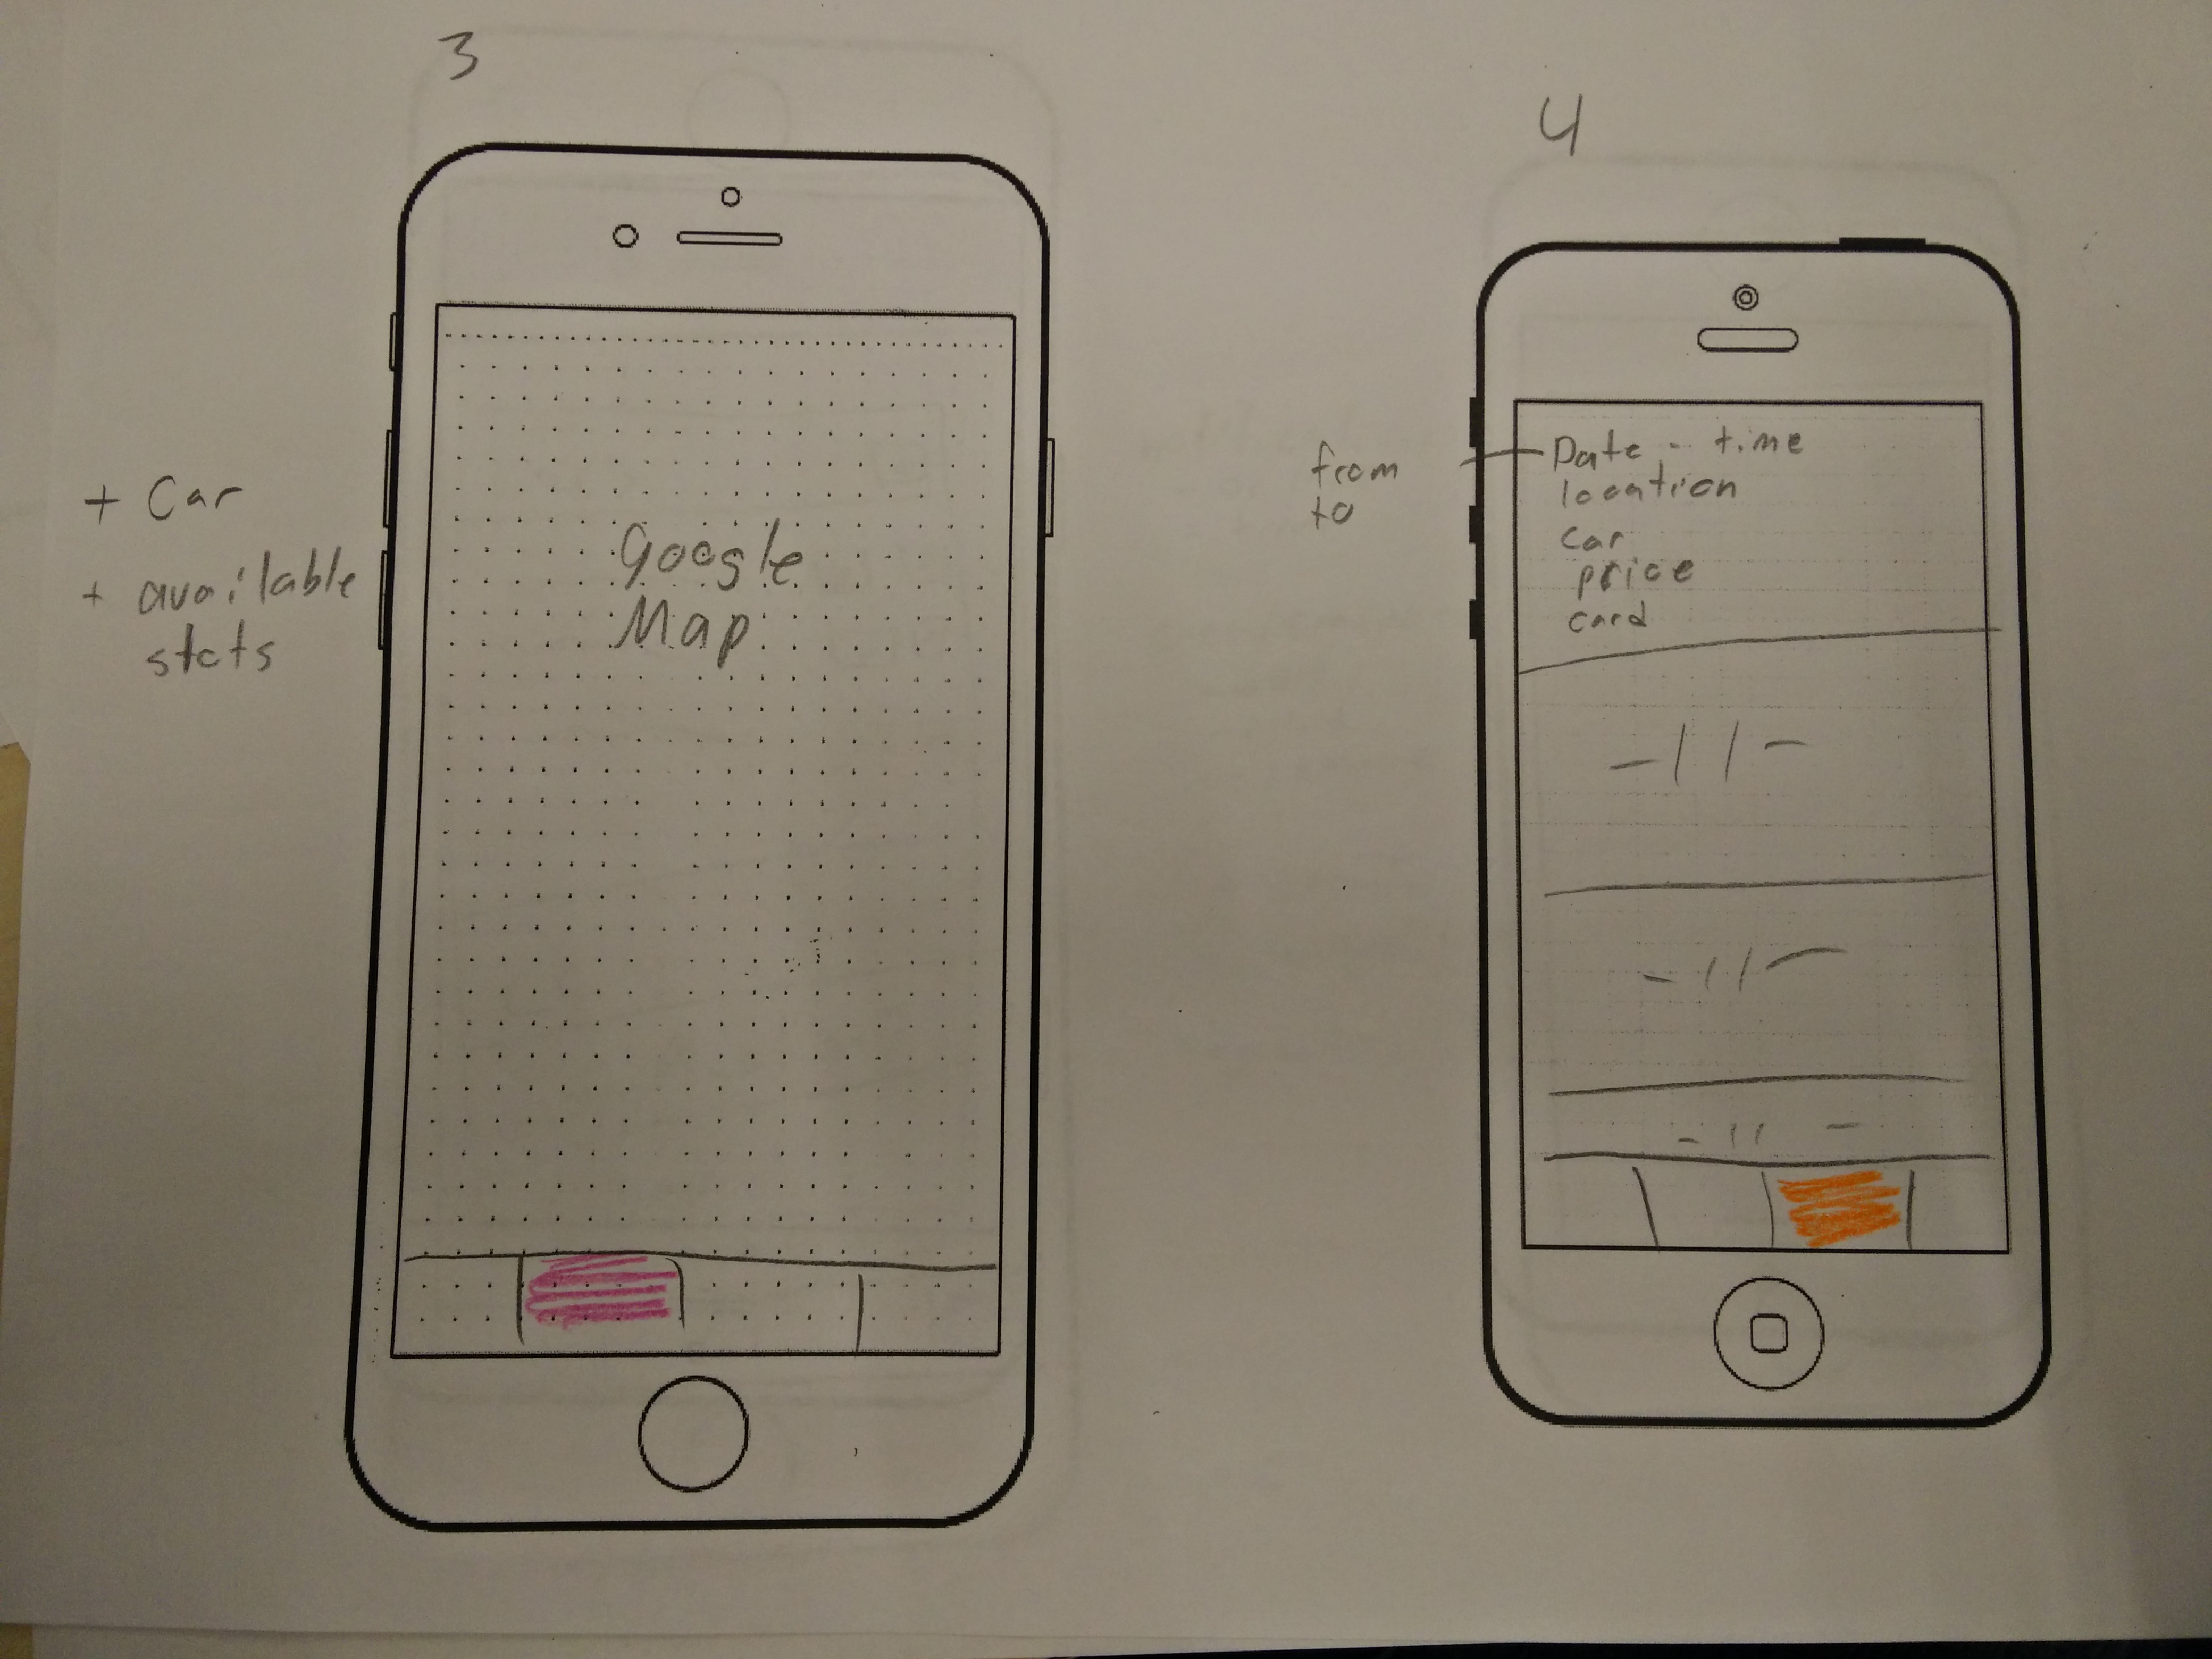 3
+ Car
+ available
stats
Google
Map
4
from
to
Date - time
location
car
price
card
-11-
-11-
-11-